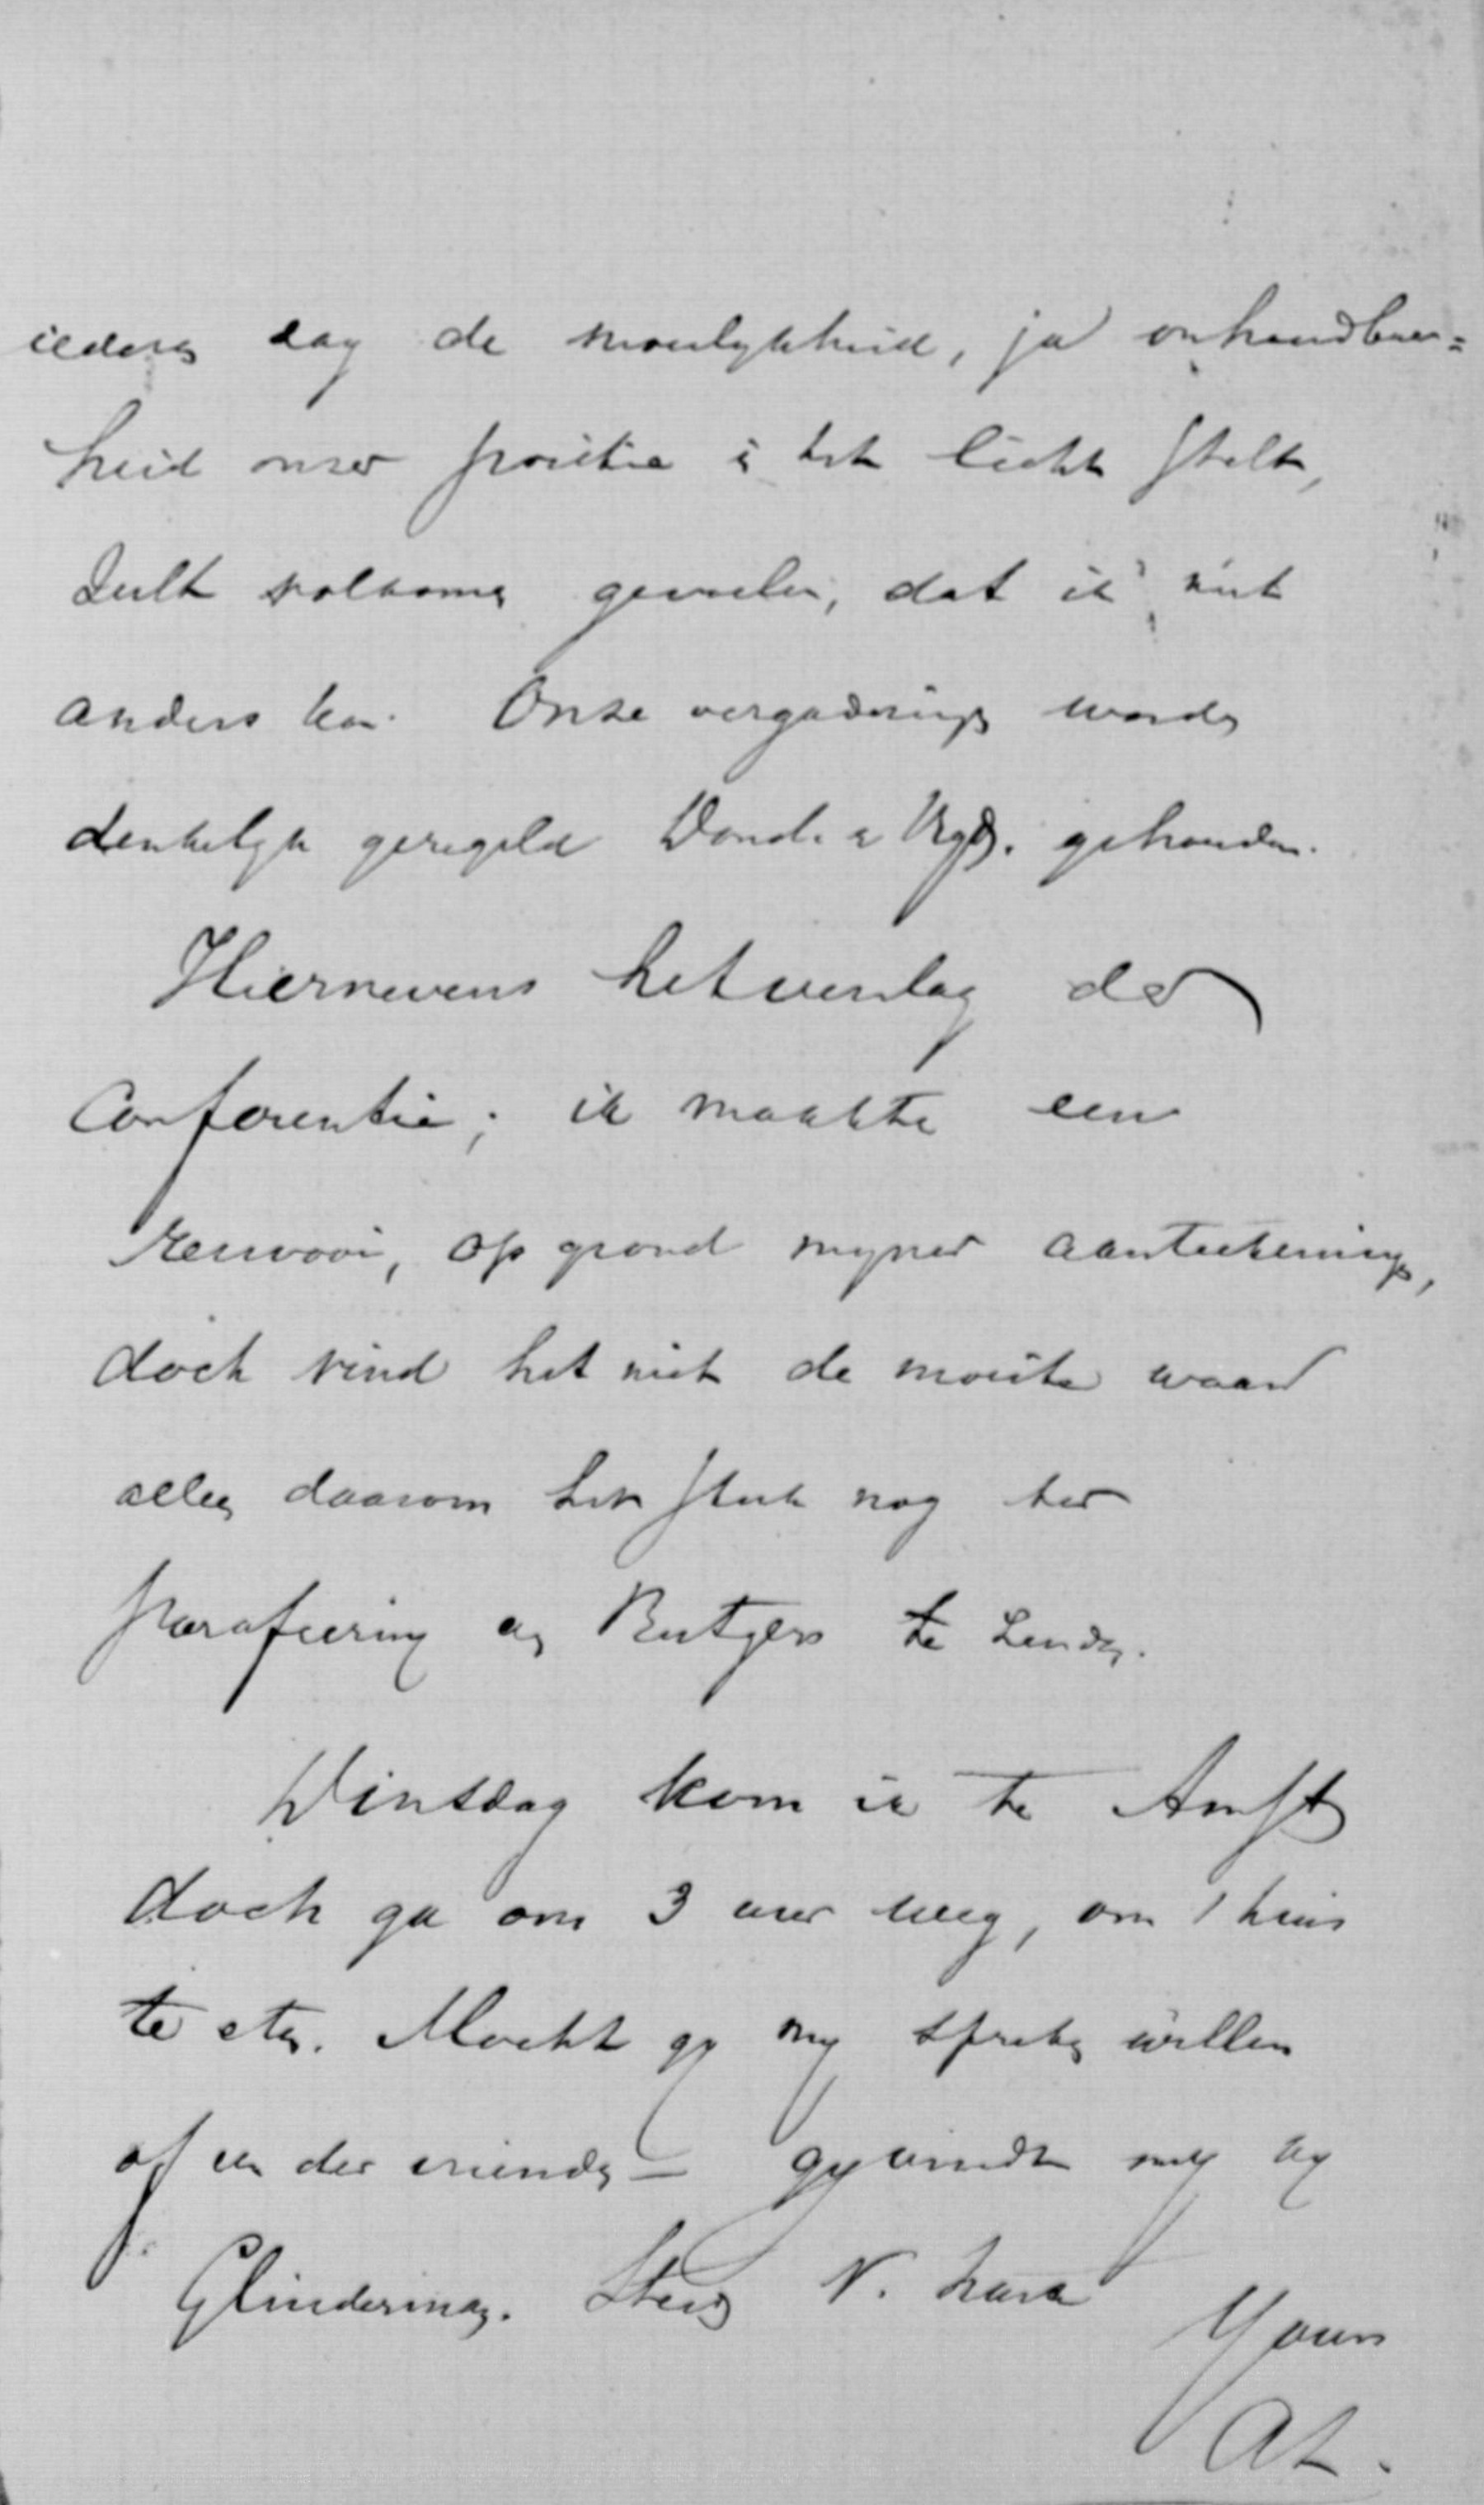 iederen dag de moeilykheid, ja onhoudbaar=
heid onzer positie in het licht stelt,
zult volkomen gevoelen, dat ik niet
anders kan. Onze vergaderingen worden
denkelyk geregeld Dond. en Vryd. gehouden.
Hiernevens het verslag der
Conferentie; ik maakte een
renvooi, op grond myner aanteekeningen,
doch vind het niet de moeite waard
alleen daarom het stuk nog ter
parafeering aan Rutgers te zenden.
Dinsdag kom ik te Amst
doch ga om 3 uur weg, om 't huis
te eten. Mocht gy my spreken willen
of een der vrienden — gy vindt my by
Glinderman. Steeds
Yours
AL.